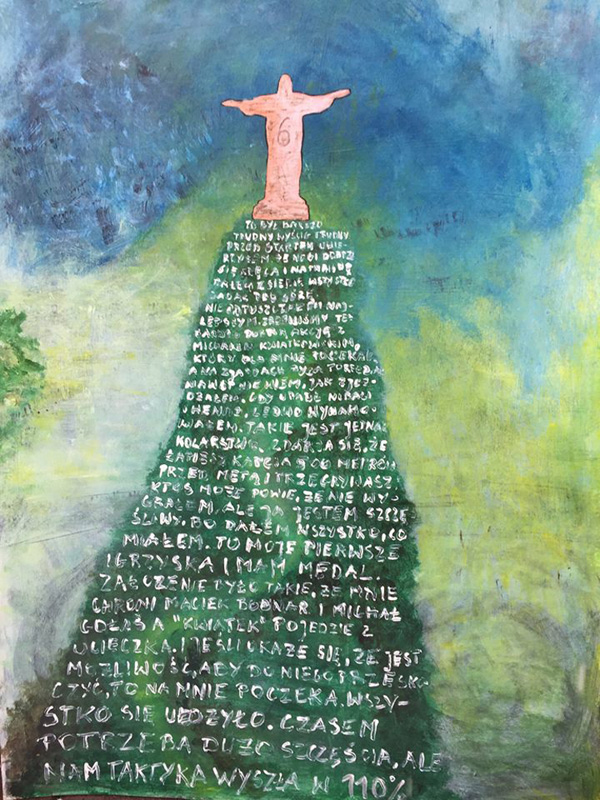 6
TO BYŁ BARDZO
TRUDNY WYŚCIG TRUDNY
PRZED STARTEM
DOBRZE
SIĘ
DAŁEM Z SIEBIE WSZYSTKO
TĘ GÓRĘ
NIE
AKCJĘ Z
MICHAŁEM KWIATKOWSKIM,
KTÓRY DLA MNIE POCZEKAŁ,
A NA ZJAZDACH
NAWET NIE WIEM, JAK
GDY UPADŁ
LEDWO WYHAMO-
WAŁEM. TAKIE JEST JEDNAK
KOLARSTWO. ZDARZA SIĘ, ŻE
ŁAPIESZ KAPCIA 500 METRÓW
PRZED METĄ I PRZEGRYWASZ.
KTOŚ MOŻE POWIE, ŻE NIE WY-
GRAŁEM. ALE JA JESTEM SZCZĘ-
ŚLIWY, BO DAŁEM WSZYSTKO, CO
MIAŁEM. TO MOJE PIERWSZE
IGRZYSKA I MAM MEDAL.
ZAŁOŻENIE BYŁO TAKIE, ŻE MNIE
CHRONI MACIEK BODNAR I MICHAŁ
GOŁAŚ A "KWIATEK" POJEDZIE Z
UCIECZKĄ. I JEŚLI OKAŻE SIĘ, ŻE JEST
MOŻLIWOŚĆ, ABY DO NIEGO PRZESKO-
CZYĆ, TO NA MNIE POCZEKA. WSZY-
STKO SIĘ UDZYŁO. CZASEM
POTRZEBA DUŻO SZCZĘŚCIA, ALE
NAM TAKTYKA WYSZŁA W 110%